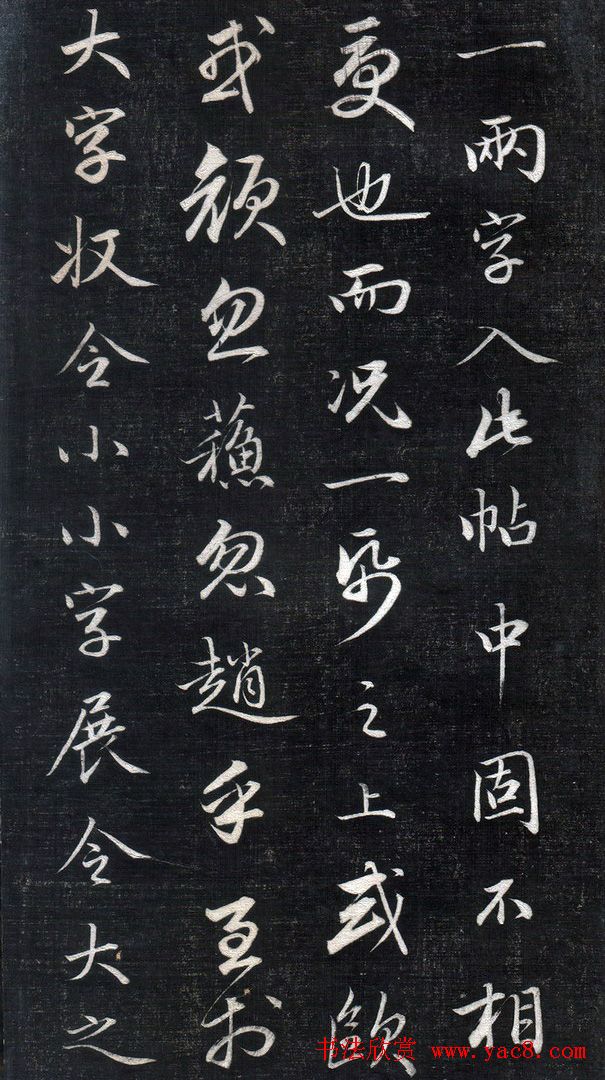 一兩字入此帖中固不相
受也而況一帋之上或歐
或顏忽蘓忽趙乎至於
大字收令小小字展令大之
书法欣赏 www.yac8.com